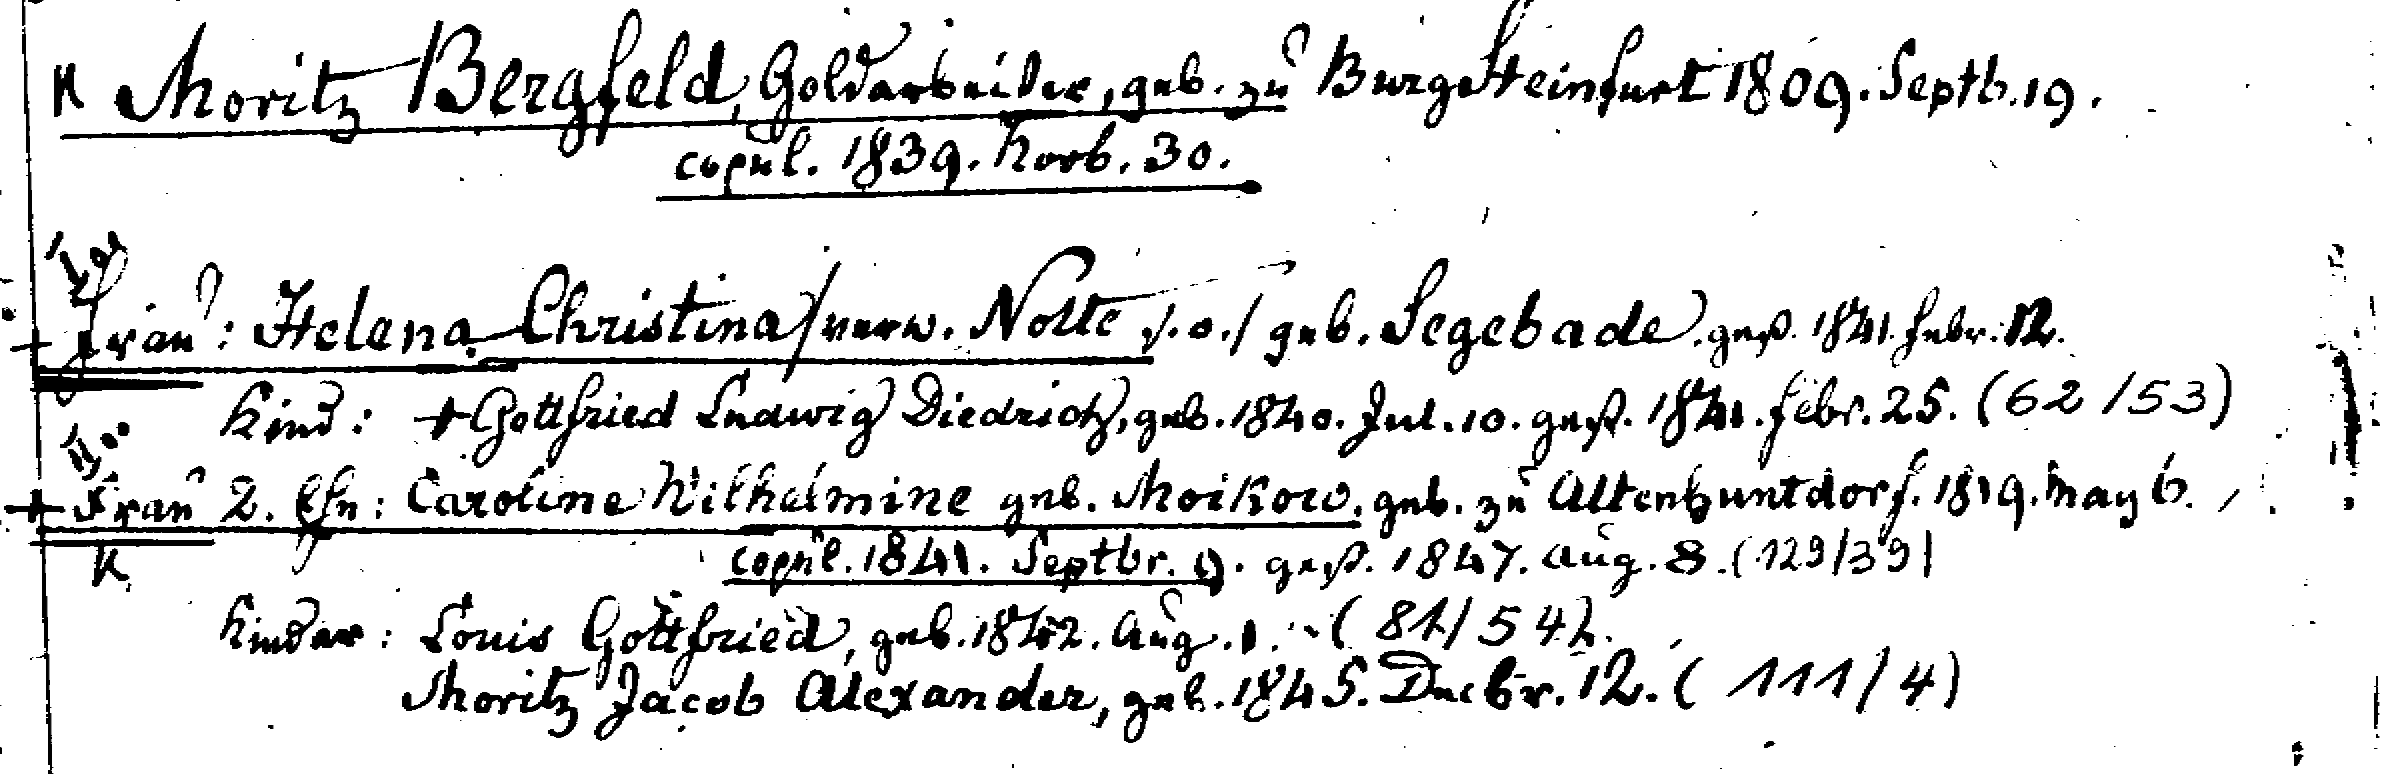 K Moritz Bergfeld, Goldarbeiter, geb. zu Burgsteinfurt 1809. Septb. 19.
copul. 1839. Novb. 30.
I.
+ Frau: Helena Christina / verw. Nolte s. o. / geb. Segebade. gest. 1841. Febr. 12.
Kind: + Gottfried Ludwig Diedrich, geb. 1840. Jul. 10. gest. 1841. Febr. 25. (62/53)
II.
+ Frau 2. Ehe: Caroline Wilhelmine geb. Moikow. geb. zu Altenhuntdorf. 1819. May 6.
K
copul. 1841. Septbr. 9. gest. 1847. Aug. 8. (129/39)
Kinder: Louis Gottfried, geb. 1842. Aug. 1. (81/54)
Moritz Jacob Alexander, geb. 1845. Decbr. 12. (111/4)